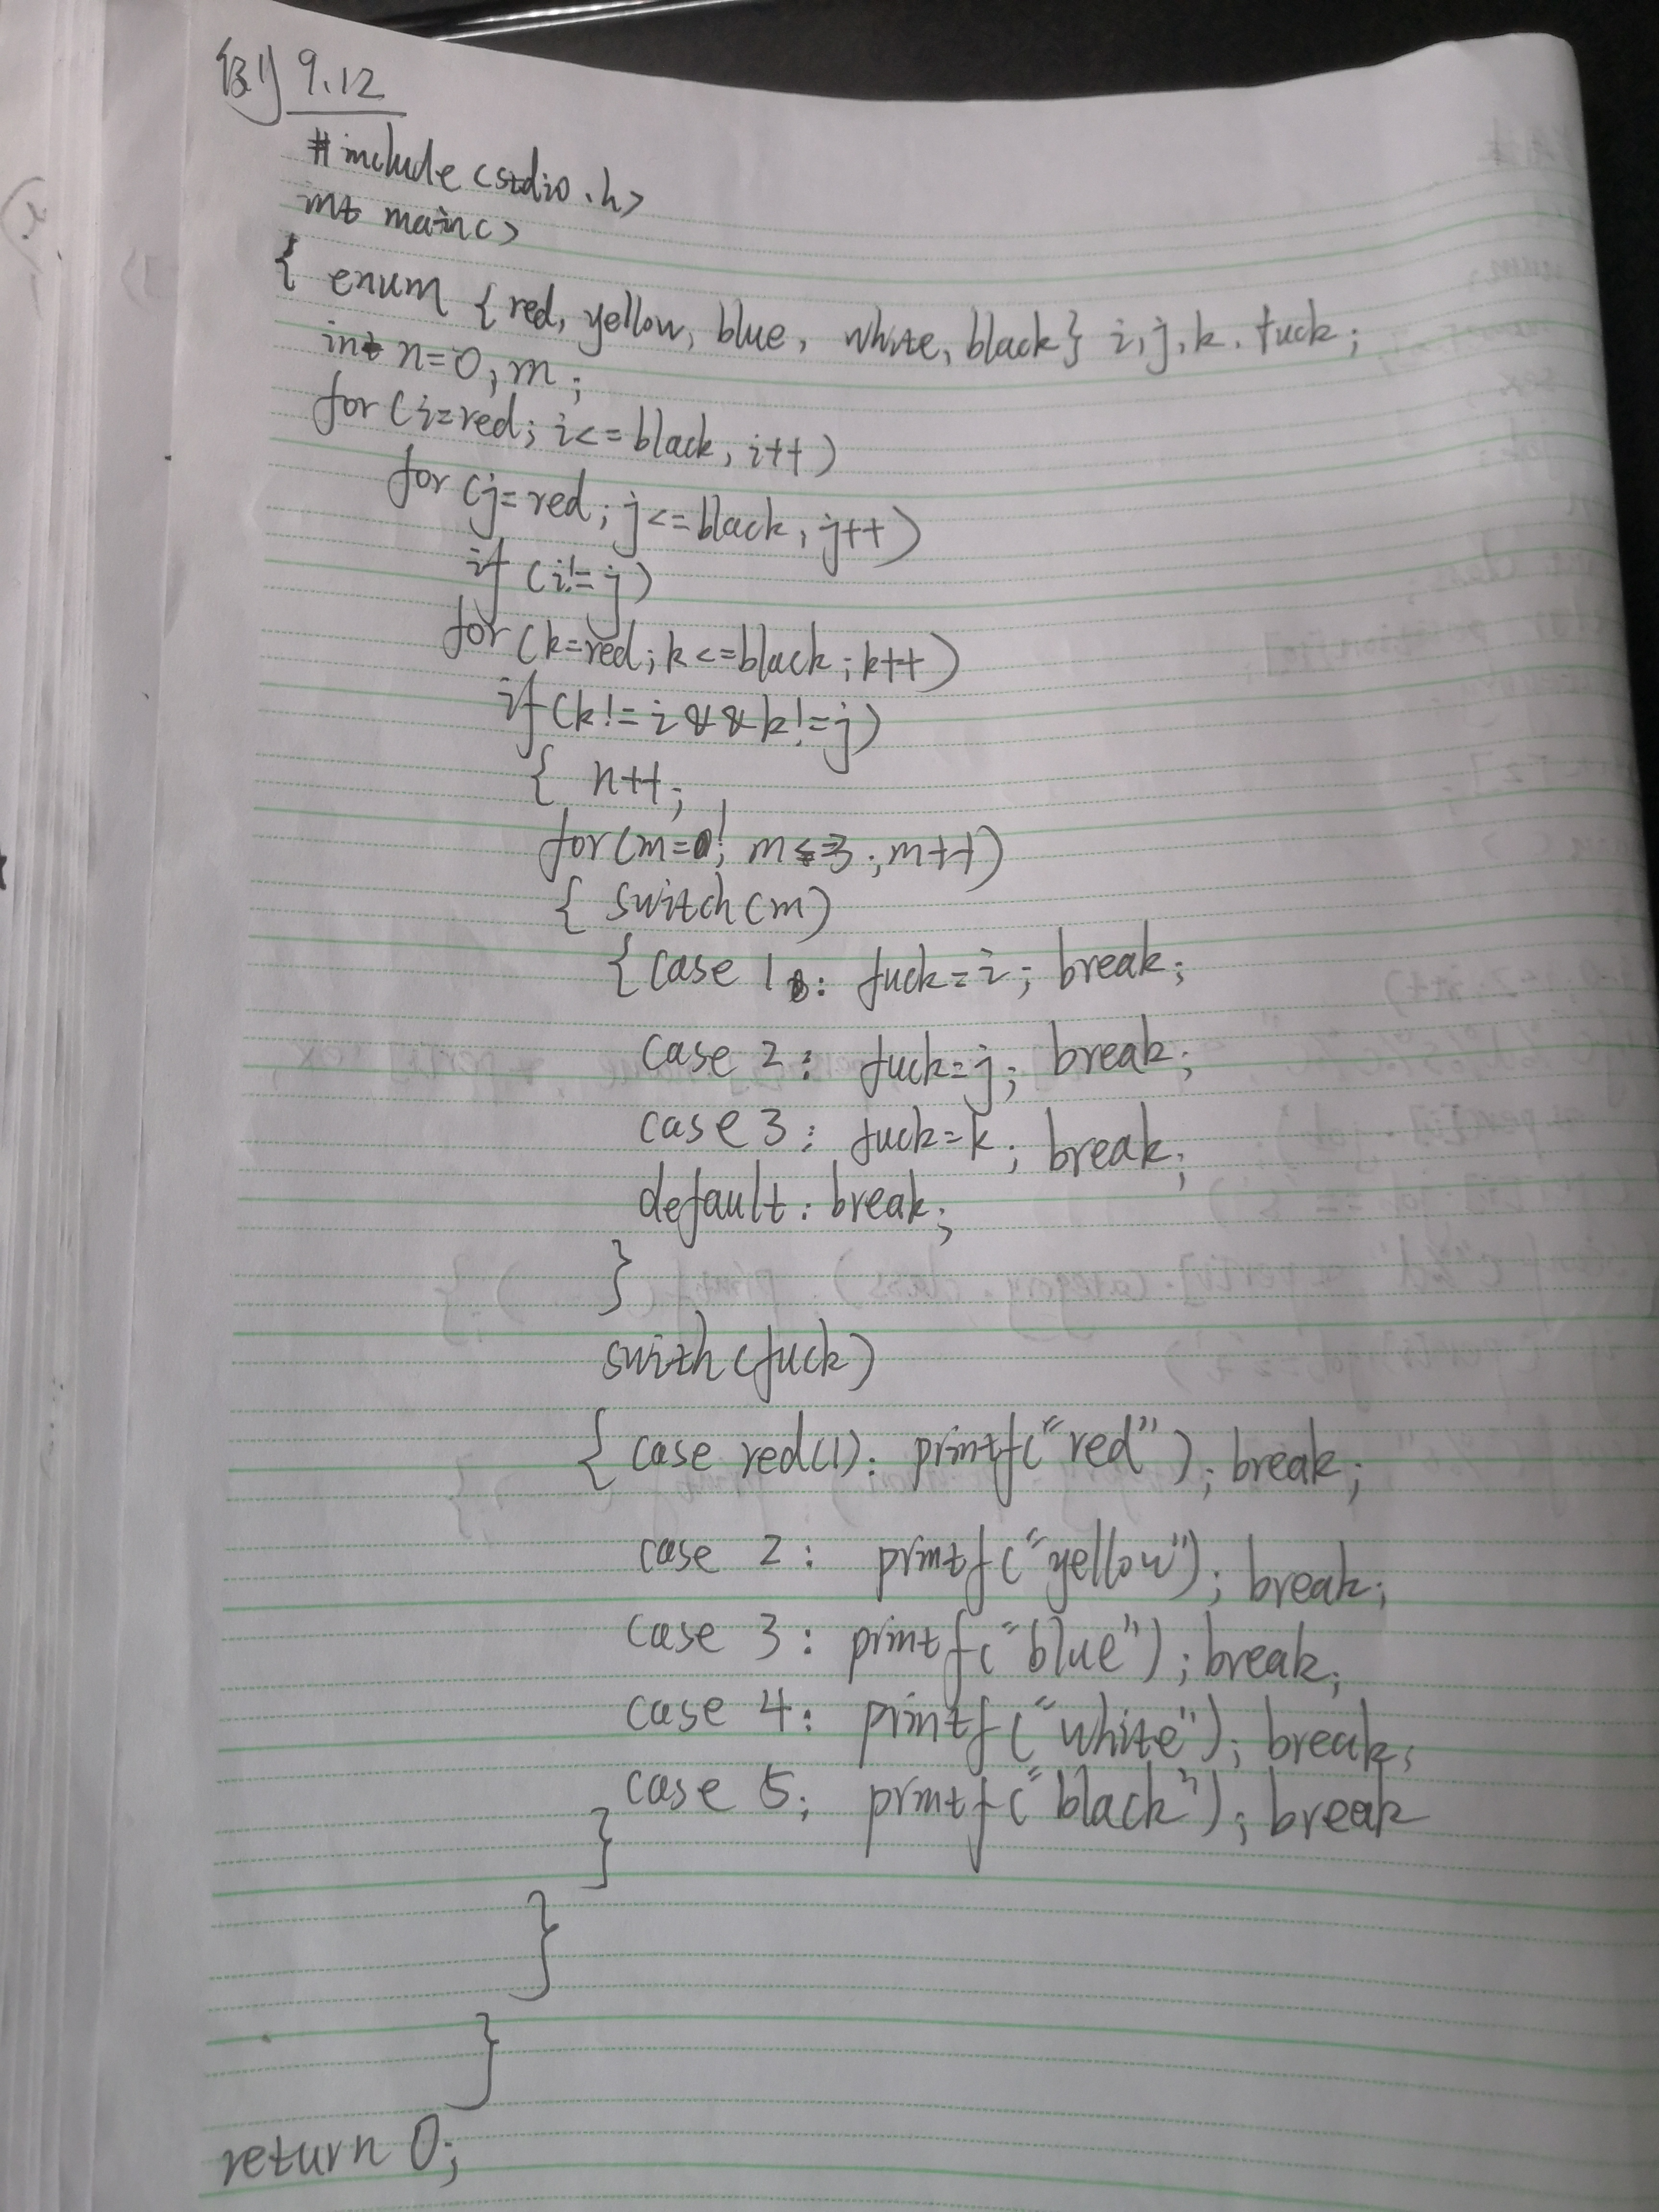 例 9.12
#include <stdio.h>
int main()
{ enum {red, yellow, blue, white, black} i,j,k, fuck;
int n=0, m;
for (i=red; i<=black, i++)
for (j=red; j<=black, j++)
if (i!=j)
for (k=red; k<=black; k++)
if (k!=i && k!=j)
{ n++;
for (m= ; m<=3; m++)
{ switch (m)
{case 1: fuck=i; break;
case 2: fuck=j; break;
case 3: fuck=k; break;
default: break;
}
swith (fuck)
{ case red(1): printf("red"); break;
case 2: printf("yellow"); break;
case 3: printf("blue"); break;
case 4: printf("white"); break;
case 5; printf("black"); break
}
}
}
return 0;